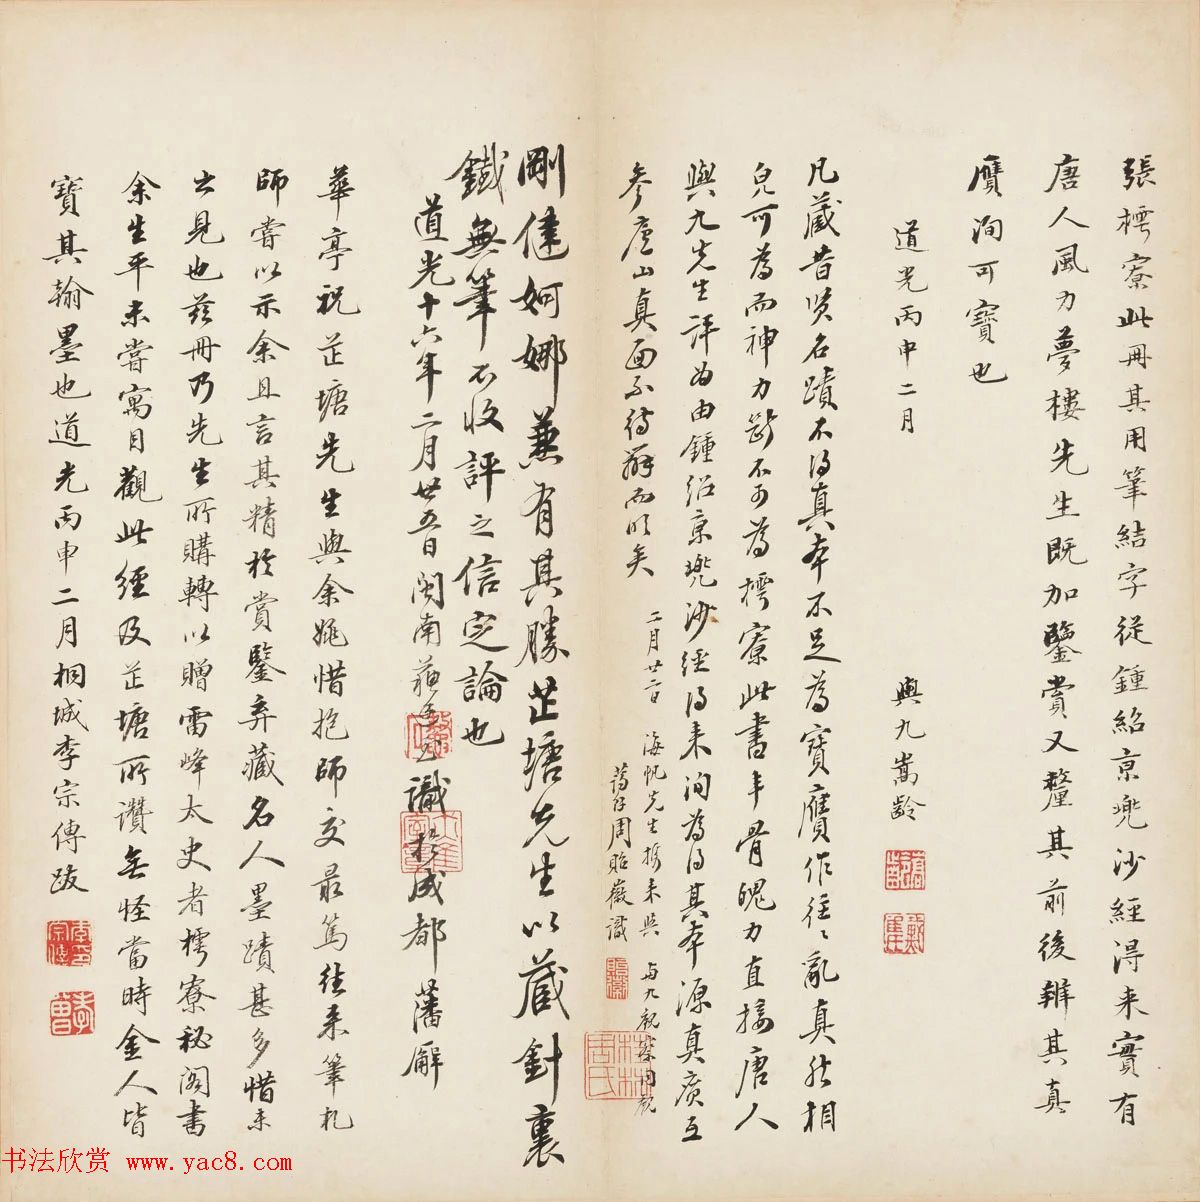 張樗寮此冊其用筆結字從鍾紹京兜沙經得来實有
唐人風力夢樓先生既加鑒賞又釐其前後辨其真
贋洵可寶也
道光丙申二月
與九嵩齡
凡藏昔贤名蹟不得真本不足為寶贋作往々亂真然相
皃可為而神力斷不可為樗寮此書丰骨魄力直接唐人
與九先生評為由鍾紹京兜沙經得来洵為得其本源真廣五
参廬山真面不待辭而明矣
二月廿二日 海帆先生携来與 与九觀察同觀
周貽徽識
剛健婀娜兼有其勝芷塘先生以蔵針裏
鐵無筆不收評之信定論也
道光十六年二月廿五日閩南蘇 識於成都藩廨
華亭祝芷塘先生與余姚惜抱師交最篤往来筆札
師嘗以示余且言其精於賞鑒弆藏名人墨蹟甚多惜未
之見也兹冊乃先生所購轉以贈雷峰太史者樗寮秘阁書
余生平未嘗寓目觀此經及芷塘所讚無怪當時金人皆
寶其翰墨也道光丙申二月桐城李宗傳跋
书法欣赏 www.yac8.com